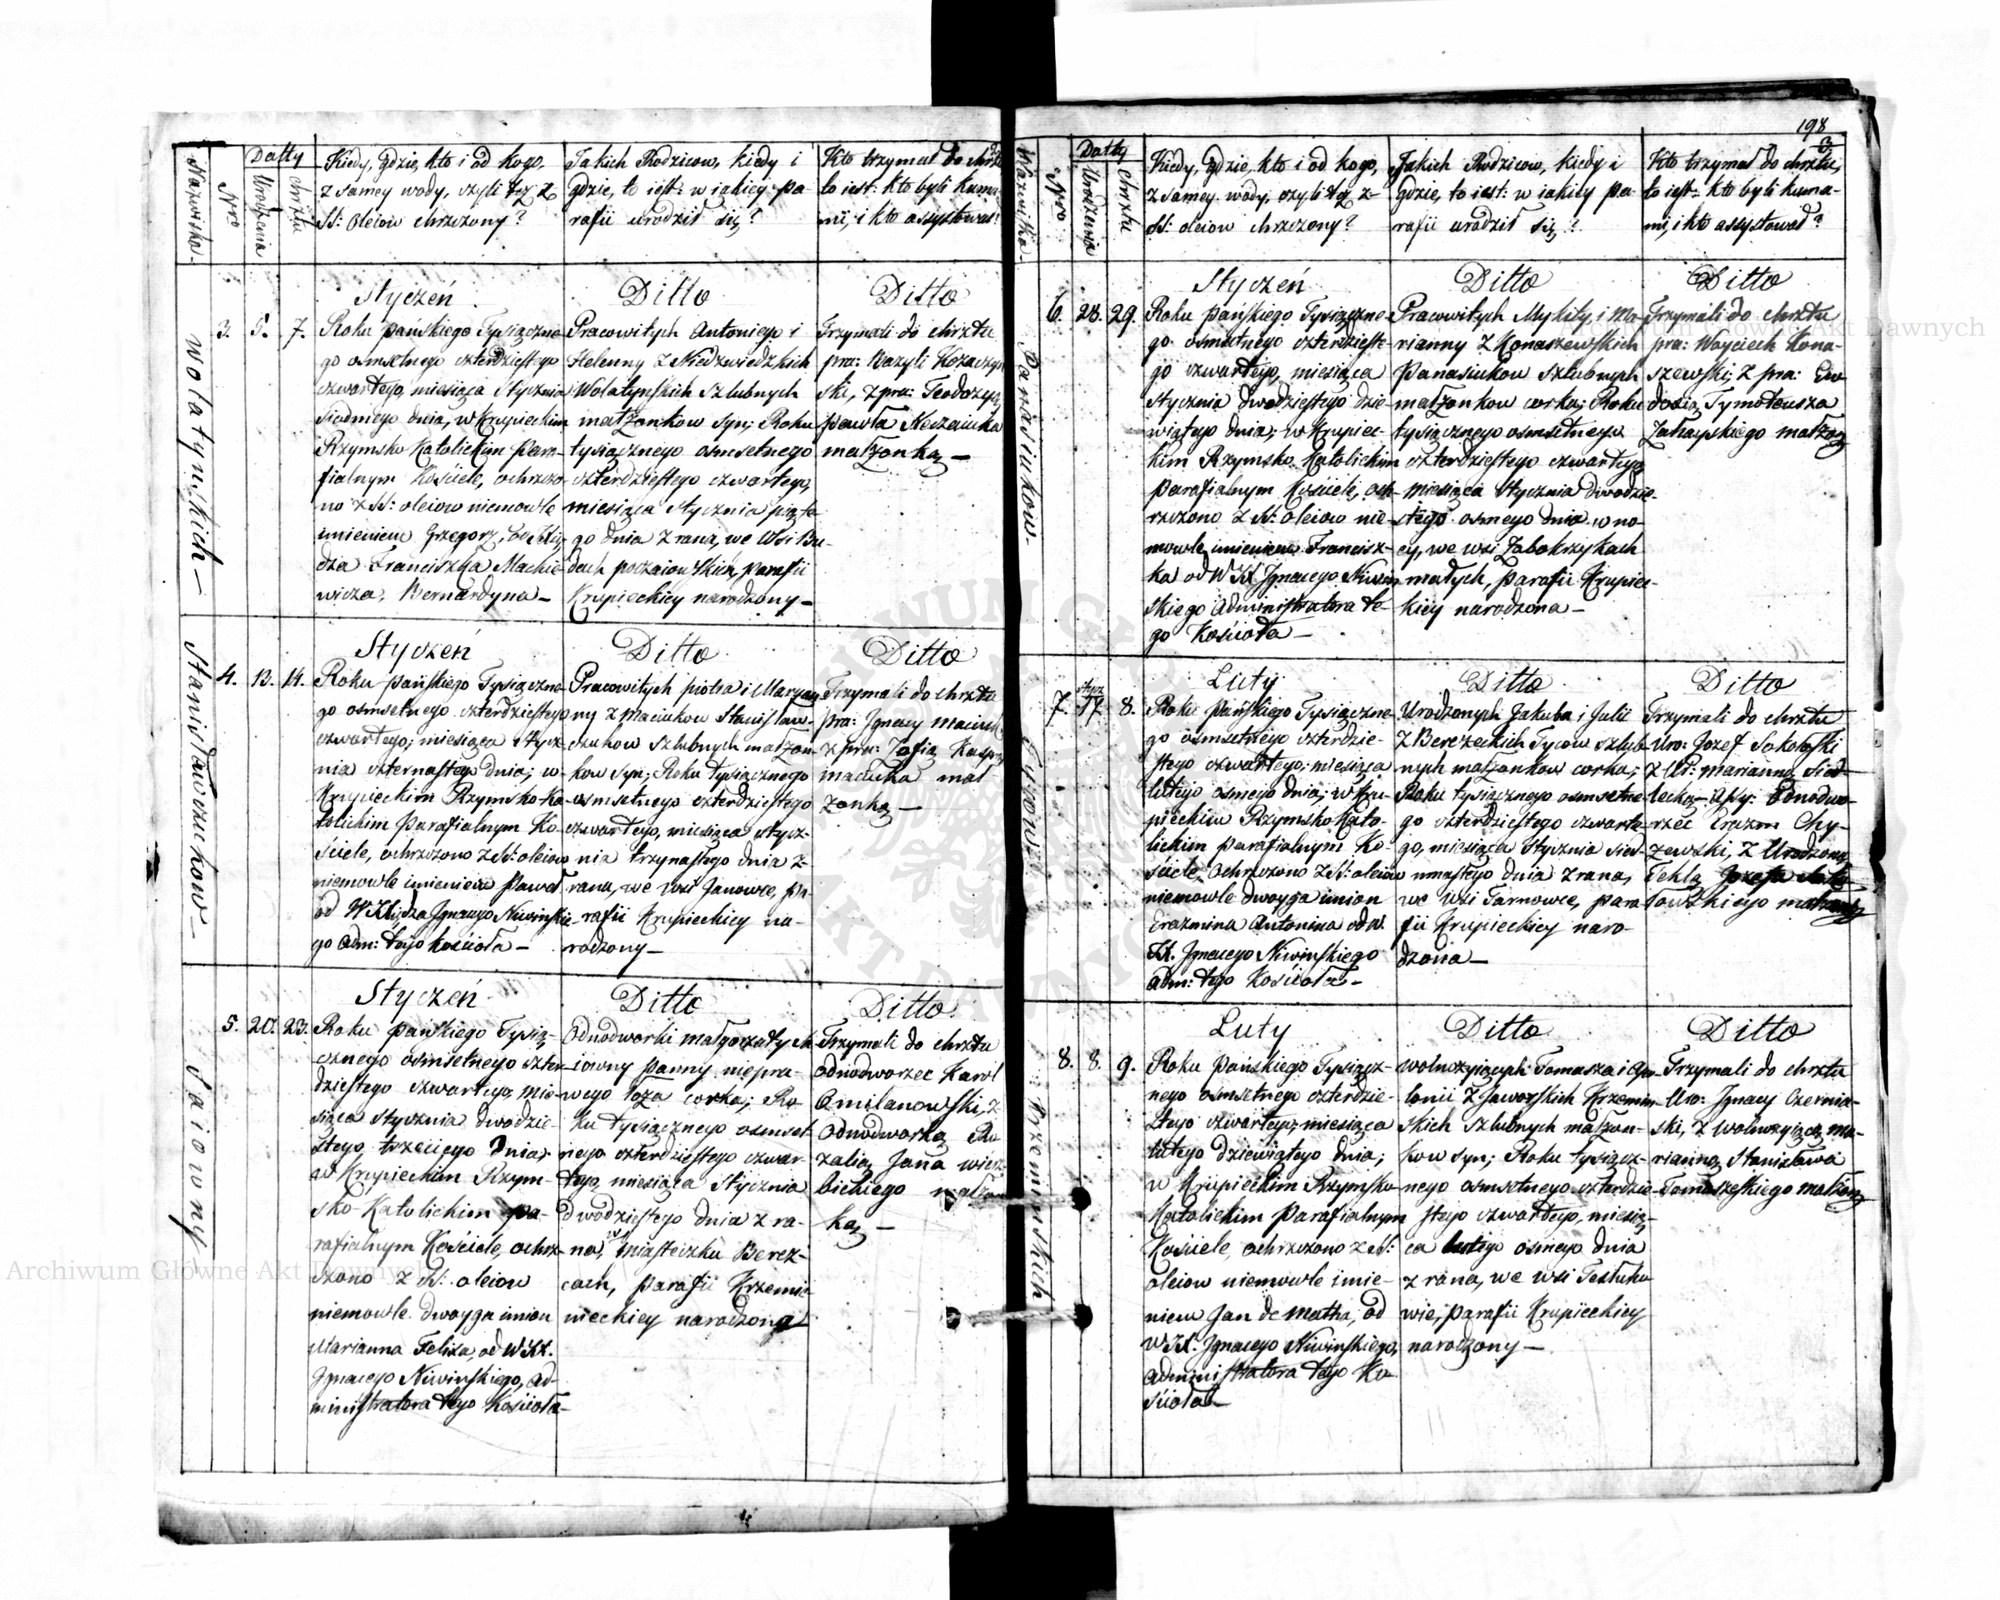 Nazwiska
Nro
Datty
Urodzenia
chrztu
Kiedy, gdzie, kto i od kogo,
z samey wody, czyli też z
SS: Oleiow chrzczony?
Jakich Rodzicow, kiedy i
gdzie, to iest: w iakiey pa-
rafii urodził się?
Kto trzymał do chrztu
to iest: kto byli kuma-
mi, i kto assystował?
Wołatyńskich
3.
5.
7.
Styczeń
Roku pańskiego Tysiączne-
go osmsetnego czterdziestego
czwartego, miesiąca Stycznia
Siedmego dnia, w Krupieckim
Rzymsko Katolickim Para-
fialnym Kościele, ochrzczo-
no z SS: oleiow niemowle
imieniem Grzegorz, od Xię-
dza Franciszka Mackie-
wicza, Bernardyna
Ditto
Pracowitych Antoniego i
Helenny z Niedzwiedzkich
Wołatyńskich Szlubnych
małżonkow syn; Roku
tysiącznego osmsetnego
czterdziestego czwartego,
miesiąca Stycznia piąte-
go dnia z rana, we Wsi Bu-
dach poczaiowskich, parafii
Krupieckiey narodzony
Ditto
Trzymali do chrztu
pra: Bazyli Kozaczyń
ski, z pra: Teodozyą
Pawła Neczaiuka
małżonką
Stanisławczukow
4.
13.
14.
Styczeń
Roku pańskiego Tysiączne-
go osmsetnego czterdziestego
czwartego, miesiąca Stycz-
nia czternastego dnia; w
Krupieckim Rzymsko Ka-
tolickim Parafialnym Ko-
ściele, ochrzczono z SS: oleiow
niemowle imieniem Paweł
od W X: Xiędza Ignacego Niwińskie-
go adm: tego kościoła
Ditto
Pracowitych piotra i Maryan-
ny z Maciukow Stanisław-
czukow szlubnych małżon-
kow syn; Roku tysiącznego
osmsetnego czterdziestego
czwartego, miesiąca stycz-
nia trzynastego dnia z
rana, we wsi Janowce, pa-
rafii Krupieckiey na-
rodzony
Ditto
Trzymali do chrztu
pra: Ignacy Maciuk
z pra: Zofią Kaspra
maciuka mał-
żonką
Saiowny
5.
20.
23.
Styczeń
Roku pańskiego Tysią-
cznego osmsetnego czter-
dziestego czwartego, mie-
siąca stycznia dwudzie-
stego trzeciego Dnia
w Krupieckim Rzym-
sko-Katolickim pa-
rafialnym Kościele, ochrz-
czono z SS: oleiow
niemowle dwoyga imion
Marianna Feliza, od WXX.
Ignacego Niwińskiego, Ad-
ministratora tego Kościoła
Ditto
Odnodworki małgorzaty Sa-
iowny panny niepra-
wego łoża corka; Ro-
ku tysiącznego osmset-
nego czterdziestego czwar-
tego, miesiąca Stycznia
dwudziestego dnia z ra-
na, w miasteczku Berez-
cach, parafii Krzemie-
nieckiey narodzona
Ditto
Trzymali do chrztu
odnodworzec Karol
Omilanowski, z
odnodworką Ro-
zalią Jana wierz-
bickiego małżon-
ką
198
Nazwiska
Nro
Datty
Urodzenia
chrztu
Kiedy, gdzie, kto i od kogo,
z samey wody, czyli też z
SS: oleiow chrzczony?
Jakich Rodzicow, kiedy i
gdzie, to iest: w iakiey pa-
rafii urodził się?
Kto trzymał do chrztu,
to iest: kto byli kuma-
mi, i kto assystował?
Panasiukow
6.
28.
29.
Styczeń
Roku pańskiego Tysiączne-
go osmsetnego czterdzieste-
go czwartego, miesiąca
stycznia dwudziestego dzie-
wiątego dnia; w Krupiec-
kim Rzymsko Katolickim
parafialnym Kościele, och-
rzczono z SS: oleiow nie-
mowle imieniem Francisz-
ka od WXX Ignacego Niwiń
skiego Administratora te-
go Kościoła
Ditto
Pracowitych Mykity i Ma-
rianny z Konaszewskich
Panasiukow szlubnych
małżonkow corka; Roku
tysiącznego osmsetnego
czterdziestego czwartego
miesiąca Stycznia dwudzie-
stego osmego dnia w no-
cy, we wsi Zabokrzykach
małych, parafii Krupiec-
kiey narodzona
Ditto
Trzymali do chrztu
pra: Woyciech Kona-
szewski, z pra: Ew-
dosią Tymoteusza
Zahayskiego małżoną
Tycow
7.
stycz
17
8.
Luty
Roku Pańskiego Tysiączne-
go osmsetnego czterdzie-
stego czwartego; miesiąca
lutego osmego dnia; w Kru-
pieckim Rzymsko Kato-
lickim parafialnym Ko-
ściele, ochrzczono z SS: oleiow
niemowle dwoyga imion
Erazmina Antonina od W.
XX. Ignacego Niwińskiego
adm: tego Kościoła
Ditto
Urodzonych Jakuba i Julii
z Berezeckich Tycow szlub-
nych małżonkow corka;
Roku tysiącznego osmsetne-
go czterdziestego czwarte-
go, miesiąca Stycznia sied-
mnastego dnia z rana,
we wsi Tarnowce, para-
fii Krupieckiey naro-
dzona
Ditto
Trzymali do chrztu
Uro: Jozef Sokołoski
z Ur: marianną Sied-
lecką Assy: Odnodwo-
rzec Erazm Chy-
zewski, z Urodzoną
Teklą Jozefa Soko-
łowskiego małżonką
Krzemińskich
8.
8.
9.
Luty
Roku Pańskiego Tysiącz-
nego osmsetnego czterdzie-
stego czwartego, miesiąca
lutego dziewiątego dnia;
w Krupieckim Rzymsko
Katolickim Parafialnym
Kościele, ochrzczono z SS:
oleiow niemowle imie-
niem Jan de Matha, od
WXX. Ignacego Niwińskiego,
administratora tego Ko-
ścioła
Ditto
wolnożyiących Tomasza i Apo-
lonii z Jaworskich Krzemiń-
skich szlubnych małżon-
kow syn; Roku tysiącz-
nego osmsetnego czterdzie-
stego czwartego, miesią-
ca lutego osmego dnia
z rana, we wsi Testuko-
wie, parafii Krupieckiey
narodzony
Ditto
Trzymali do chrztu
Uro: Ignacy Czernia-
ski, z wolnożyiącą ma-
rianną Stanisława
Tomaszeskiego małżoną
Archiwum Główne Akt Dawnych
Archiwum Główne Akt Dawnych